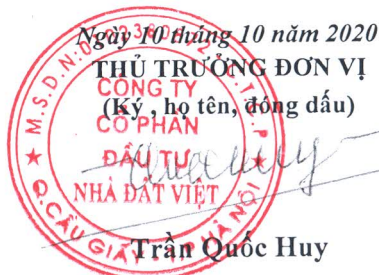 Ngày 10 tháng 10 năm 2020
THỦ TRƯỞNG ĐƠN VỊ
(Ký , họ tên, đóng dấu)
CÔNG TY
CỔ PHẦN
ĐẦU TƯ
NHÀ ĐẤT VIỆT
M.S.D.N:
Q.CẦU GIẤY - T.P HÀ NỘI
Trần Quốc Huy